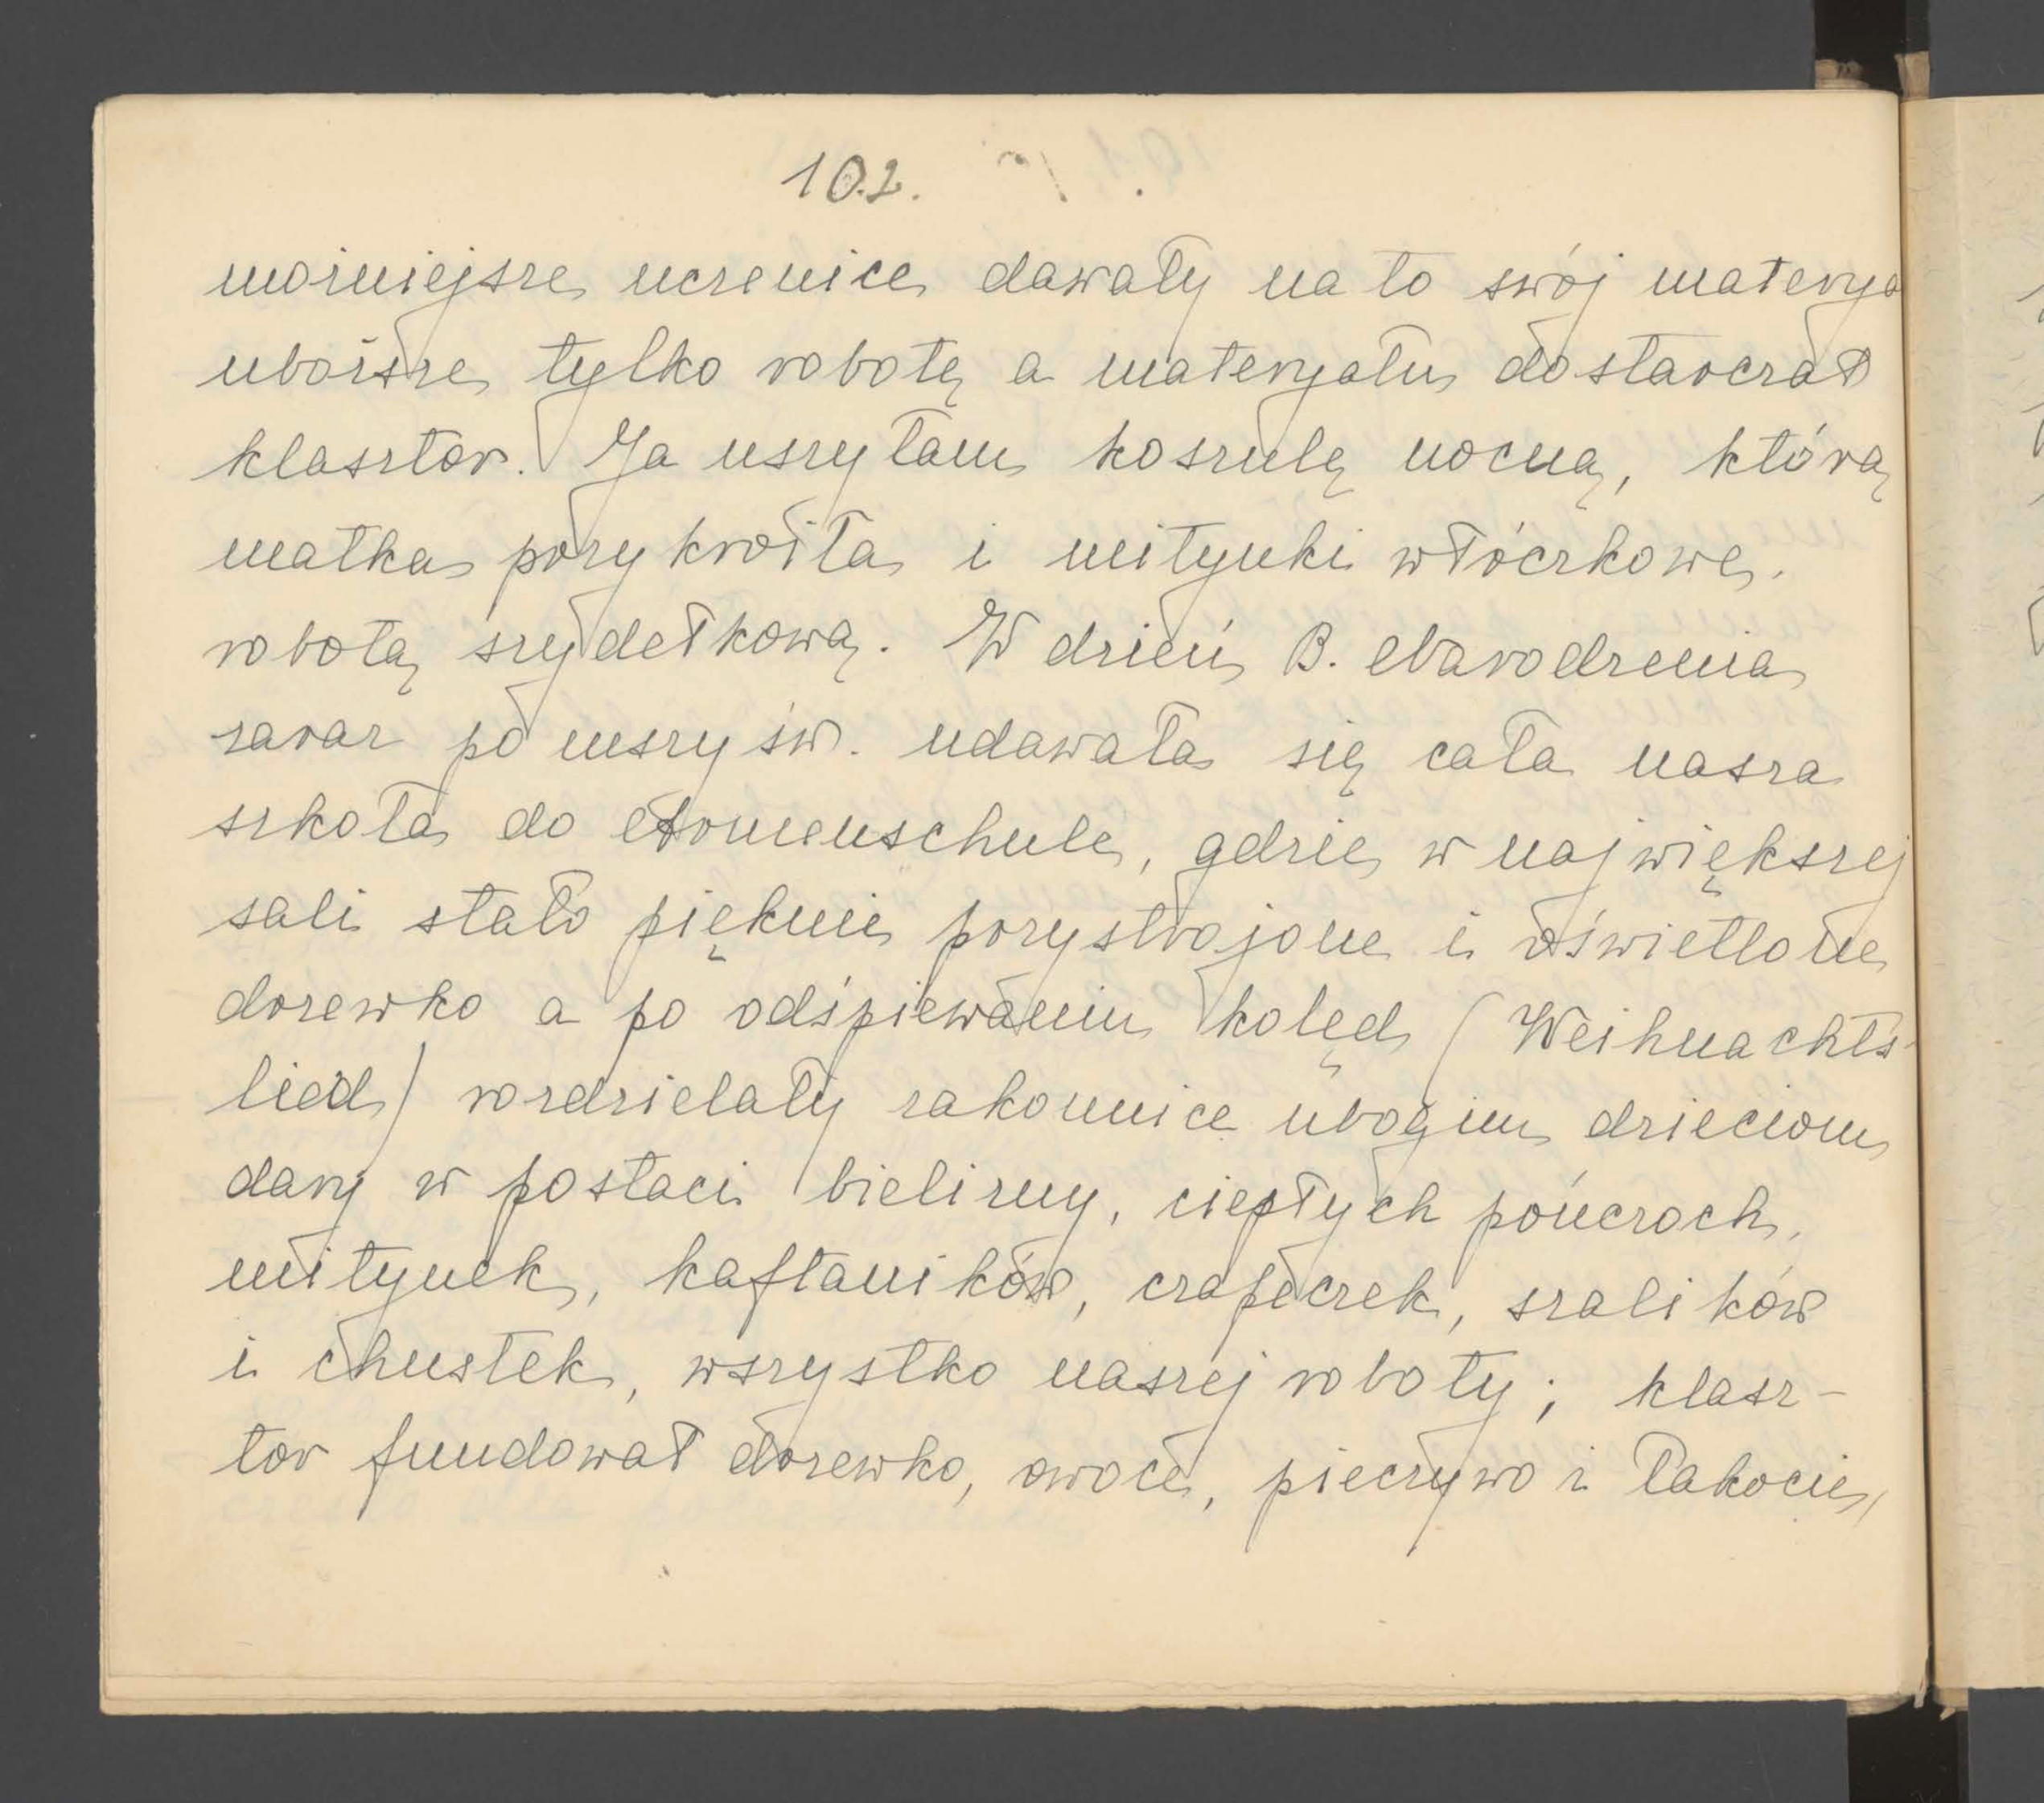 102.
możniejsze uczenice dawały na to swój materya
uboższe tylko robotę a materyału dostarczał
klasztor. Ja uszyłam koszulę nocną, którą
matka przykroiła i mitynki włóczkowe,
robotą szydełkową. W dzień B. Narodzenia
zaraz po mszy św. udawała się cała nasza
szkoła do Armenschule, gdzie w największej
sali stało pięknie przystrojone i oświetlone
drzewko a po odśpiewaniu kolęd (Weihnachts-
lied) rozdzielały zakonnice ubogim dzieciom
dary w postaci bielizny, ciepłych pończoch,
mitynek, kaftaników, czapeczek, szalików
i chustek, wszystko naszej roboty; klasz-
tor fundował drzewko, owoce, pieczywo i łakocie,